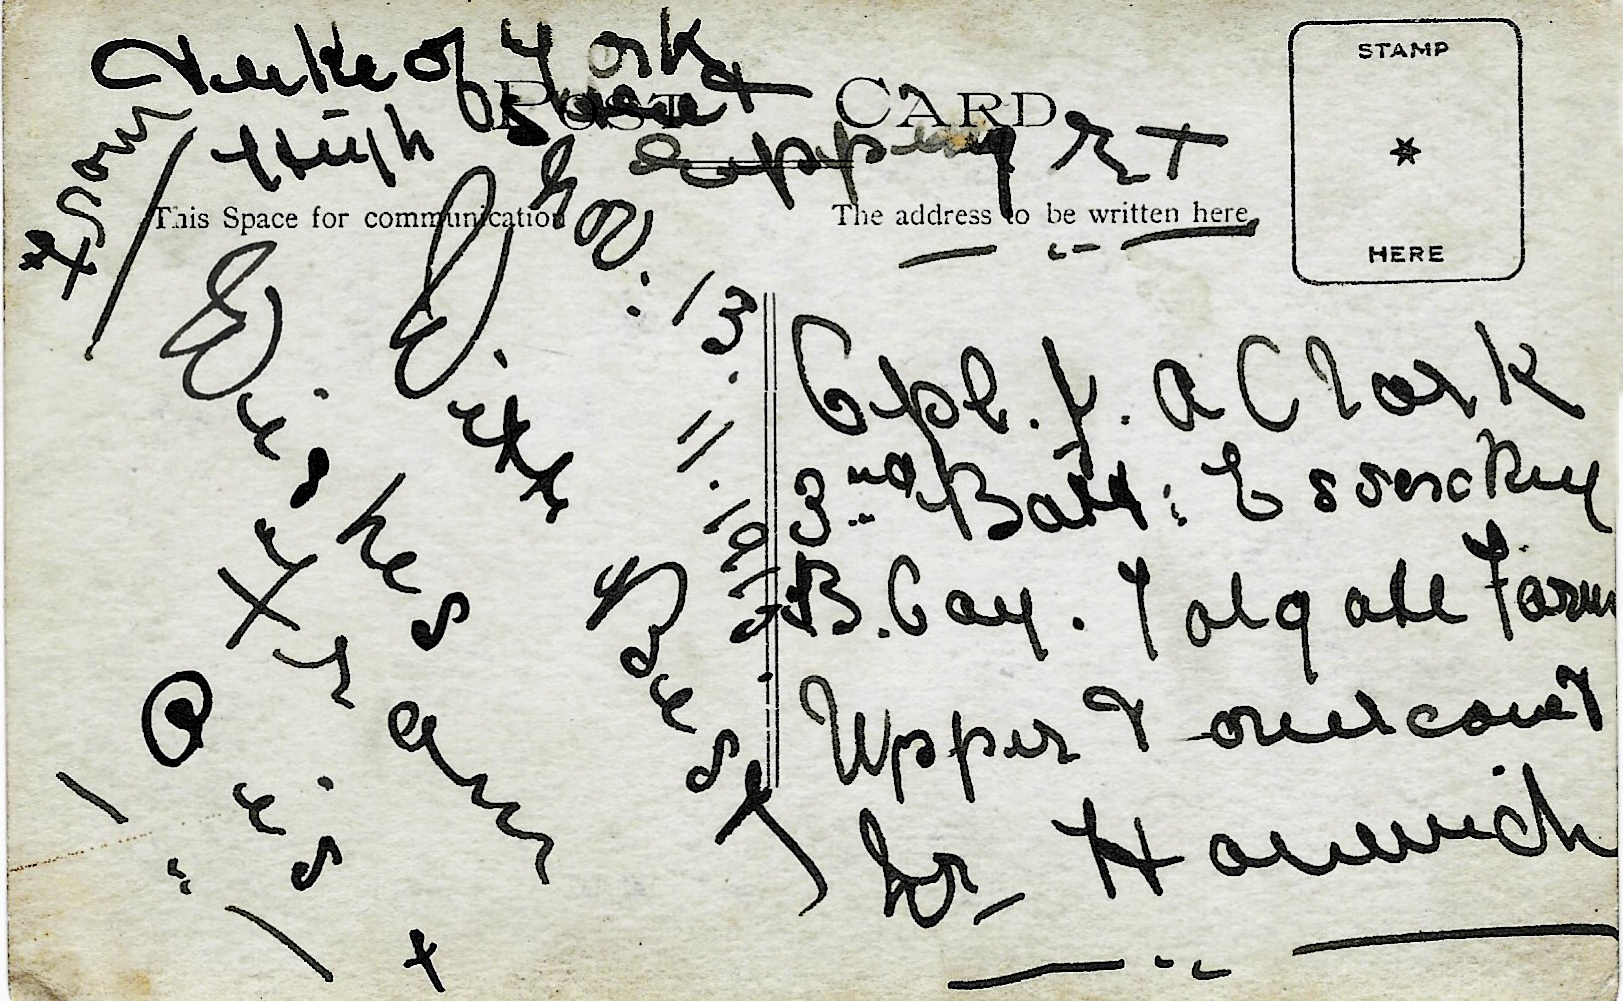 Duke of York
High Street
Epping
POST CARD
STAMP
HERE
This Space for communication
The address to be written here
Nov: 13. 11. 1915.
With Best
Wishes
from
Cpl. J. A Clark
3rd Batt: Essex Reg
B. Coy. Tolgate Farm
Upper Dovercourt
Nr Harwich